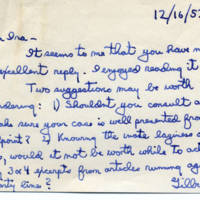 12/16/5
Ira-
It seems to me that you have m
excellent reply. I enjoyed reading it
Two suggestions may be worth
dering: 1) Shouldn't you consult a
ke sure your case is well presented from
port? 2) Knowing the inate laziness o
, would it not be worth while to a
3 or 4 excerpts from articles running aga
arty line?